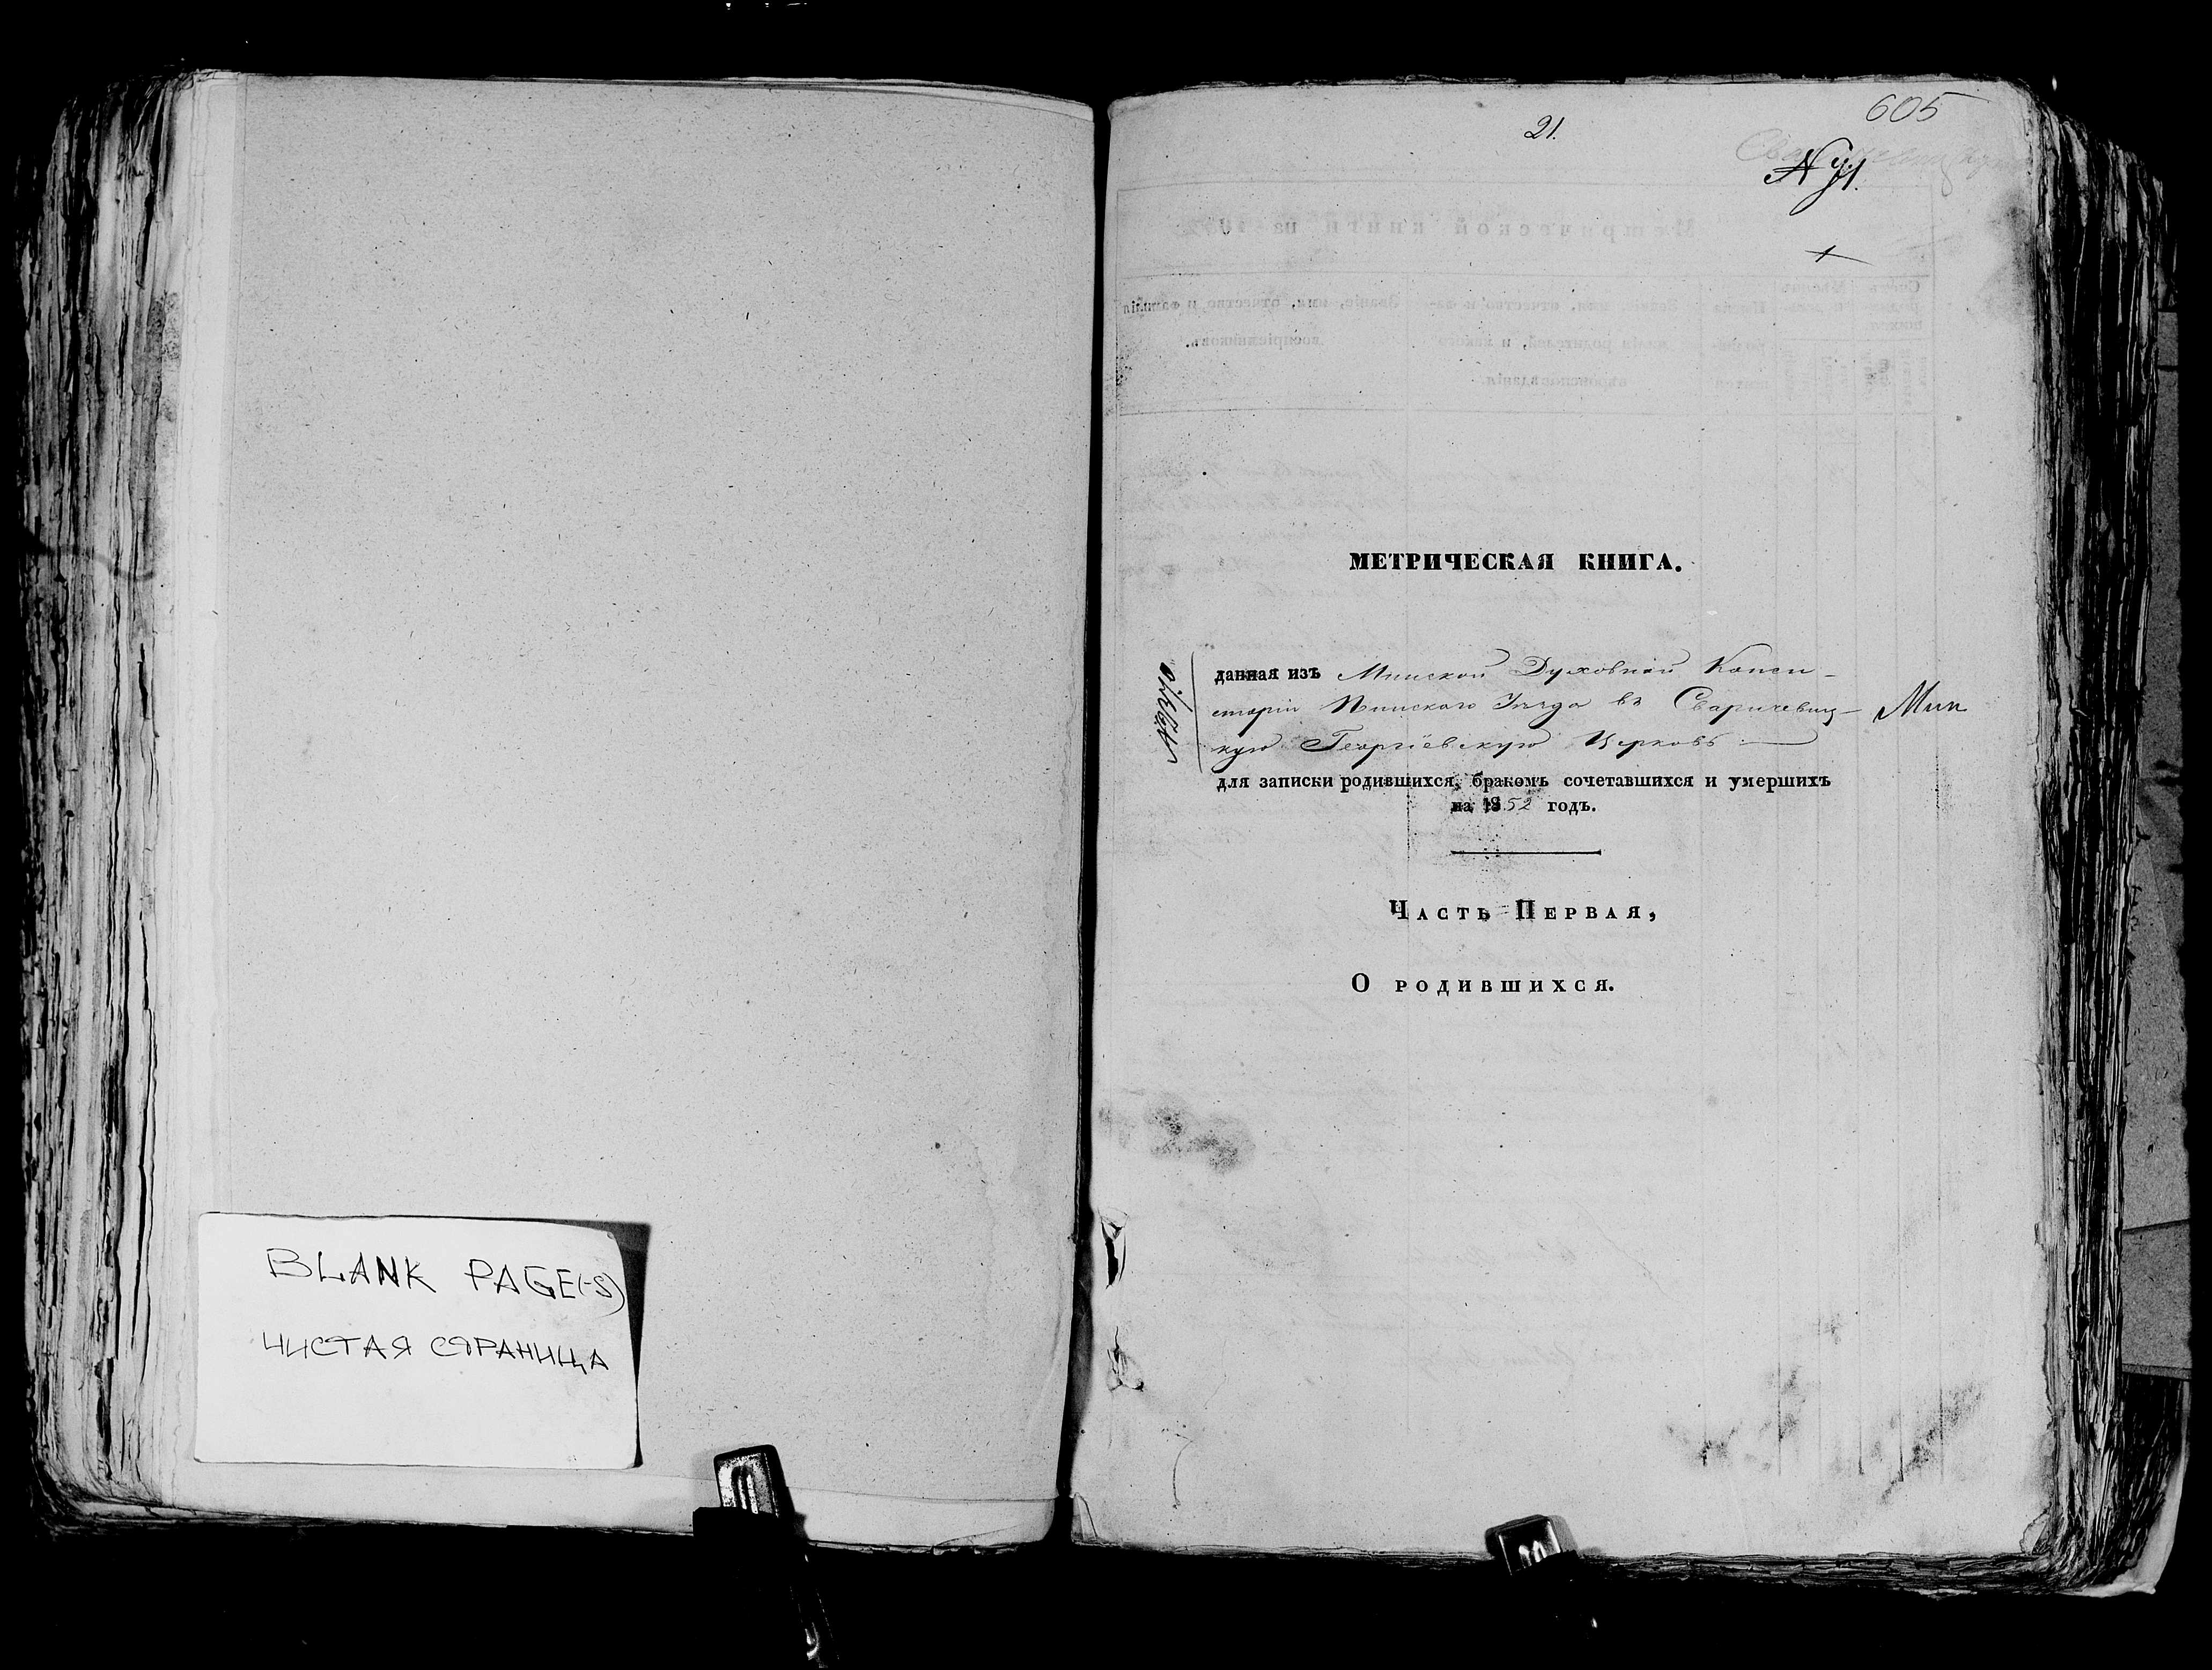 BLANK PAGE(-S)
ЧИСТАЯ СТРАНИЦА
605
21.
МЕТРИЧЕСКАЯ КНИГА.
данная изъ Минской Духовной Конси-
сторіи Пинскаго Уѣзда въ Сваричевиц-
кую Георгіевскую Церковь
Мин
для записки родившихся, бракомъ сочетавшихся и умершихъ
на 1852 годъ.
Часть Первая,
О родившихся.